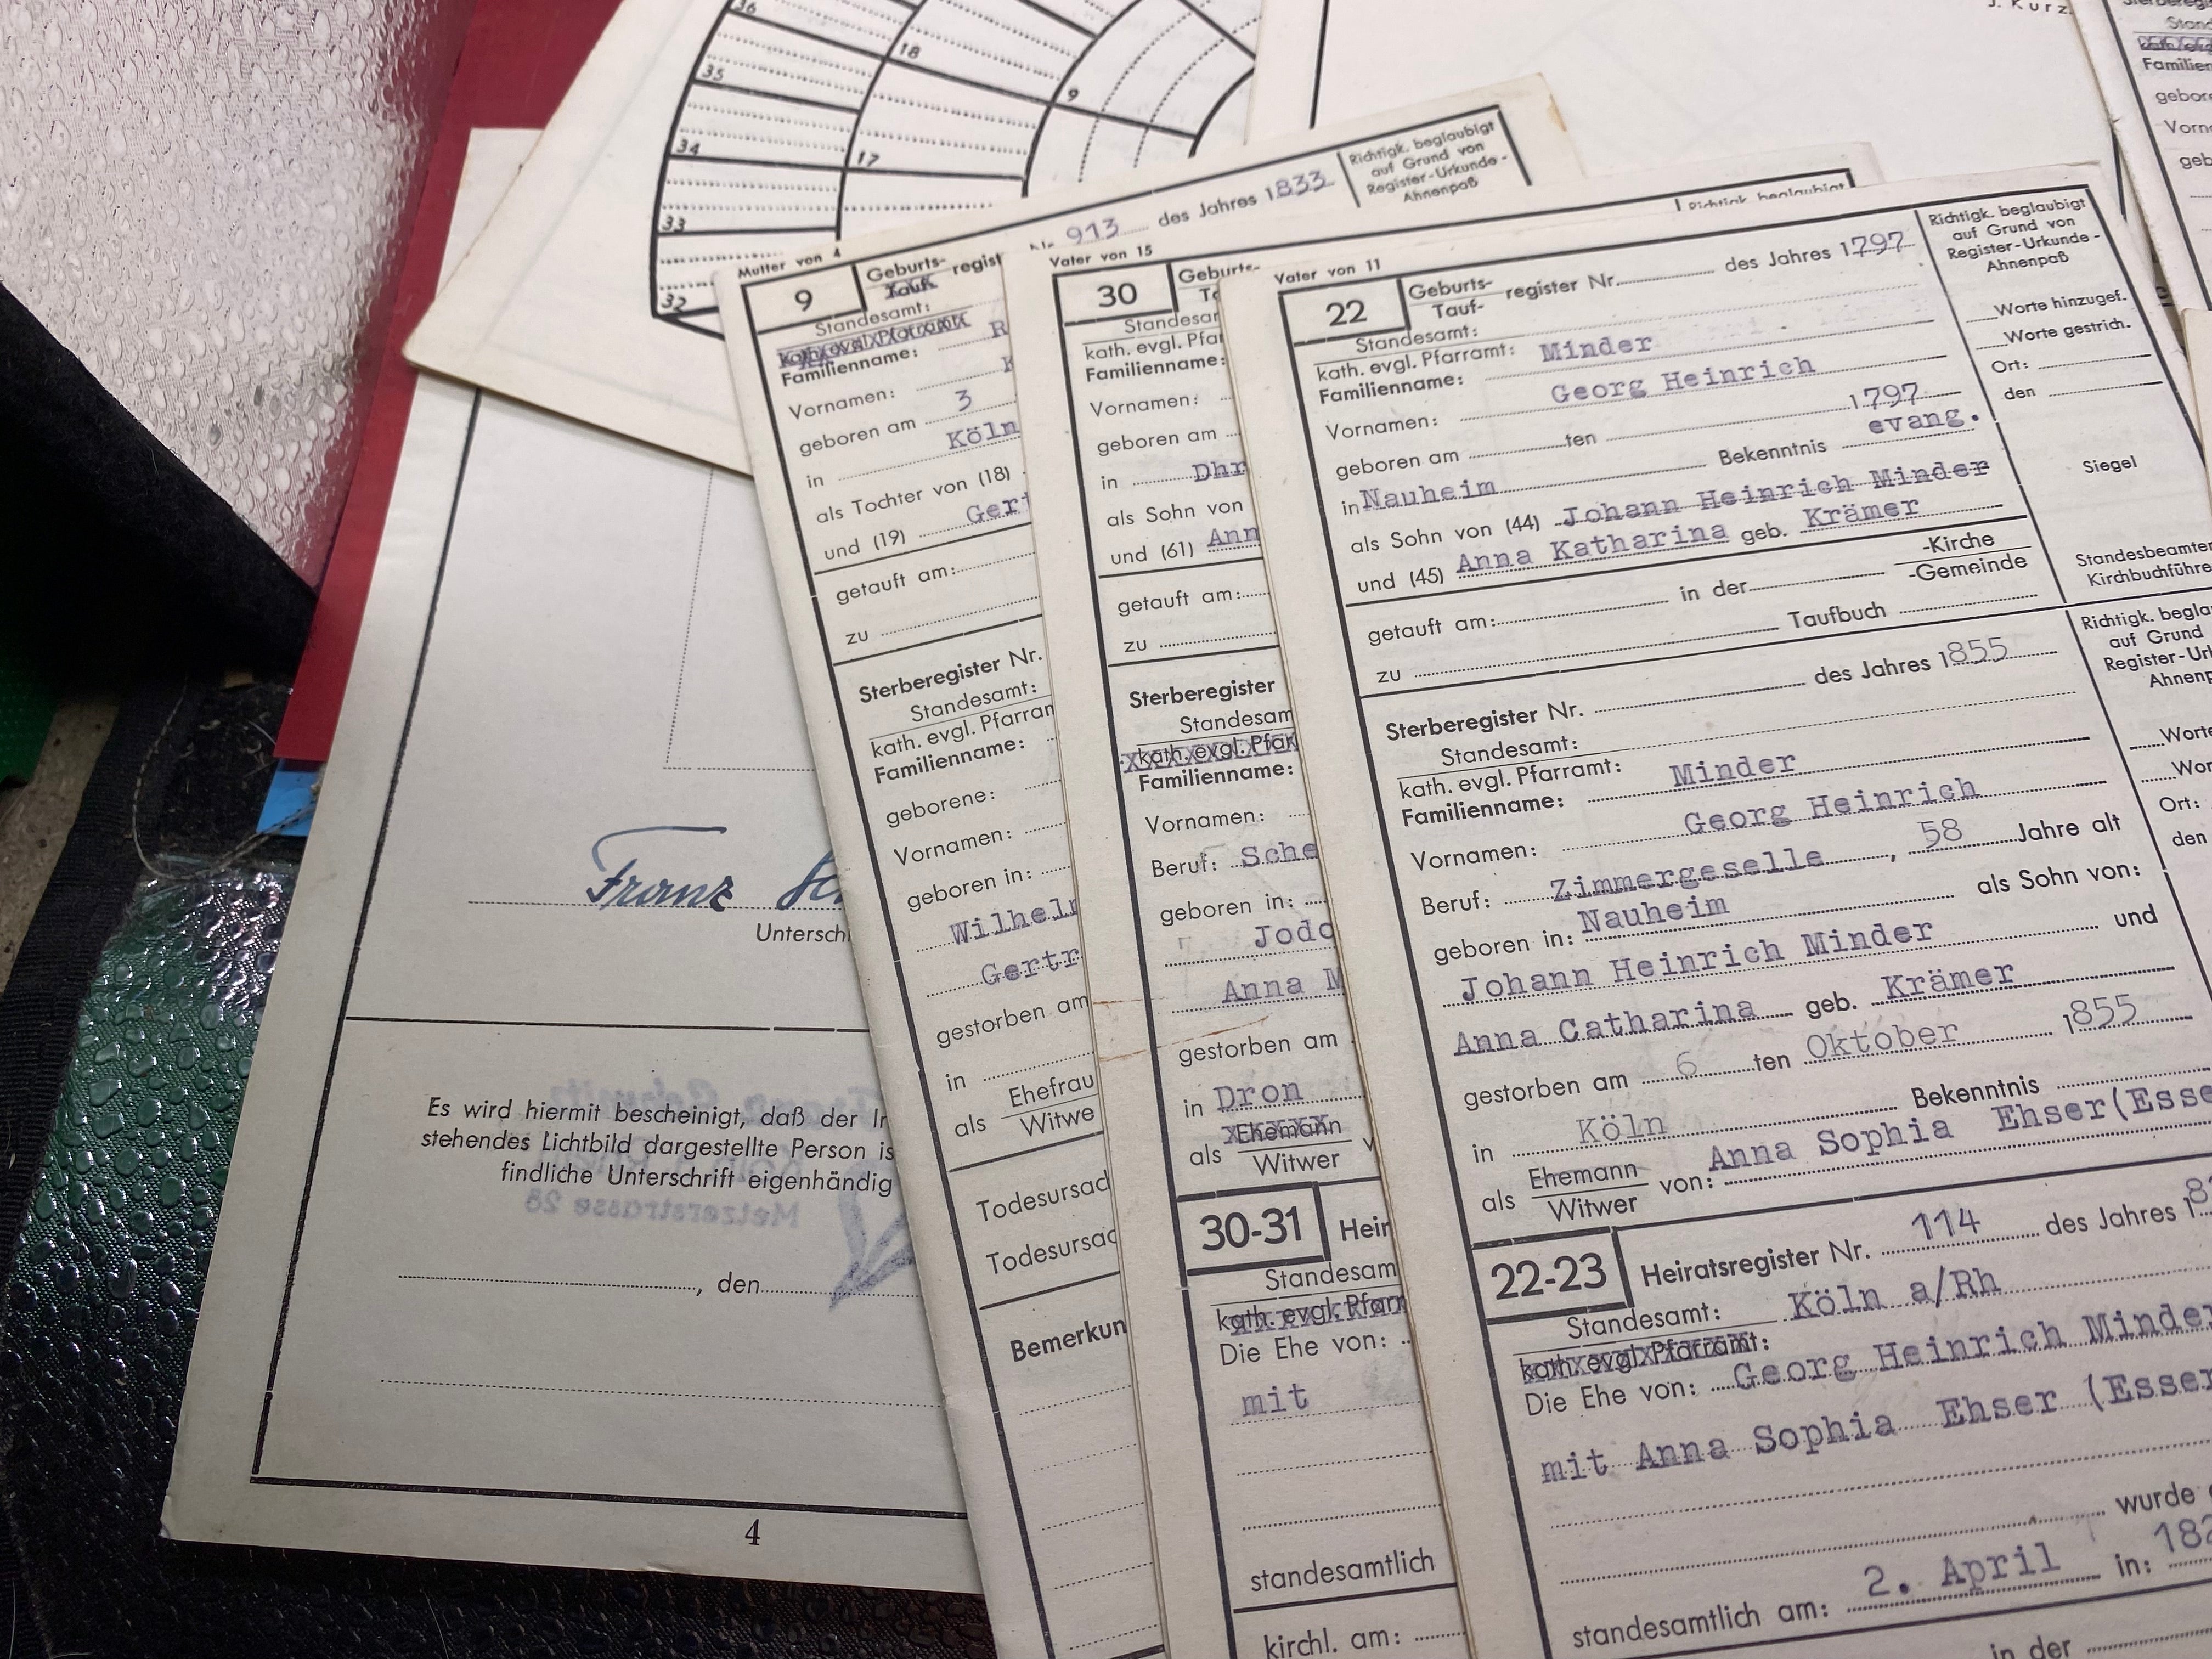 J. Kurz.
36
35
34
33
32
18
17
9
Nr. 913 des Jahres 1833
Richtigk. beglaubigt
auf Grund von
Register-Urkunde-
Ahnenpaß
Mutter von 4
9
Geburts-
Tauf-
Standesamt:
kath. evgl. Pfarramt
Familienname: R
Vornamen: K
geboren am 3
in Köln
als Tochter von (18)
und (19) Gert
getauft am:
zu
Sterberegister Nr.
Standesamt:
kath. evgl. Pfarram
Familienname:
geborene:
Vornamen:
geboren in:
Wilhelm
Gertr
gestorben am
in
als Ehefrau
Witwe
Todesursac
Todesursac
Bemerkun
Vater von 15
30
Geburts-
Standesam
kath. evgl. Pfar
Familienname:
Vornamen:
geboren am
in Dhr
als Sohn von
und (61) Ann
getauft am:
zu
Sterberegister
Standesam
kath. evgl. Pfar
Familienname:
Vornamen:
Beruf: Sche
geboren in:
Jodo
Anna M
gestorben am
in Dron
als Ehemann
Witwer v
30-31
Heir
Standesam
kath. evgl. Pfarr
Die Ehe von:
mit
standesamtlich
kirchl. am:
Vater von 11
22
Geburts-
Tauf-
register Nr. des Jahres 1797
Richtigk. beglaubigt
auf Grund von
Register-Urkunde-
Ahnenpaß
Worte hinzugef.
Worte gestrich.
Ort:
den
Siegel
Standesbeamter
Kirchbuchführer
Standesamt:
kath. evgl. Pfarramt:
Familienname: Minder
Vornamen: Georg Heinrich
geboren am ten 1797
in Nauheim Bekenntnis evang.
als Sohn von (44) Johann Heinrich Minder
und (45) Anna Katharina geb. Krämer
getauft am: in der -Kirche
-Gemeinde
zu Taufbuch
Sterberegister Nr. des Jahres 1855
Standesamt:
kath. evgl. Pfarramt:
Familienname: Minder
Vornamen: Georg Heinrich
Beruf: Zimmergeselle, 58 Jahre alt
geboren in: Nauheim als Sohn von:
Johann Heinrich Minder und
Anna Catharina geb. Krämer
gestorben am 6 ten Oktober 1855
in Köln Bekenntnis
als Ehemann
Witwer von: Anna Sophia Ehser(Esse
22-23
Heiratsregister Nr. 114 des Jahres 18
Standesamt: Köln a/Rh
kath. evgl. Pfarramt:
Die Ehe von: Georg Heinrich Minder
mit Anna Sophia Ehser (Esser
wurde
standesamtlich am: 2. April 182
in:
in der
Richtigk. begla
auf Grund
Register-Ur
Ahnenp
Worte
Wor
Ort:
den
Familien
gebore
Vorn
geb
Franz
Unterschr
Es wird hiermit bescheinigt, daß der In
stehendes Lichtbild dargestellte Person is
findliche Unterschrift eigenhändig
Franz Schmitz
Metzerstrasse 28
, den
4